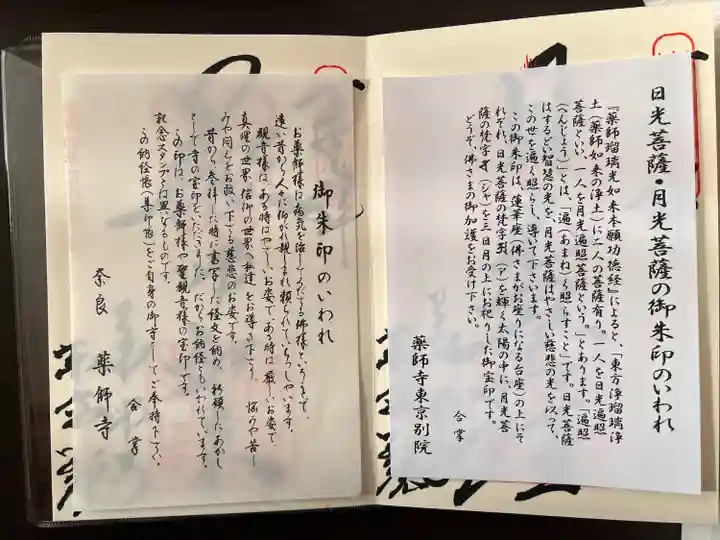 日光菩薩・月光菩薩の御朱印のいわれ
『薬師瑠璃光如来本願功徳経』によると、「東方浄瑠璃浄
土（薬師如来の浄土）に二人の菩薩有り。一人を日光遍照
菩薩といい、一人を月光遍照菩薩という。」とあります。「遍照
（へんじょう）」とは、「遍（あまね）く照らすこと」です。日光菩薩
はするどい智慧の光を、月光菩薩はやさしい慈悲の光を以って、
この世を遍く照らし、導いて下さいます。
この御朱印は、蓮華座（佛さまがお座りになる台座）の上にそ
れぞれ、日光菩薩の梵字（ア）を輝く太陽の中に、月光菩
薩の梵字（シャ）を三日月の上にお祀りした御宝印です。
どうぞ、佛さまの御加護をお受け下さい。
薬師寺東京別院
合掌
御朱印のいわれ
お薬師様は病気を治して下さる佛様ということで、
遠い昔から人々に仰がれ親しまれ頼られていらっしゃいます。
観音様は、ある時はやさしいお姿で、ある時は厳しいお姿で、
真理の世界、信仰の世界へ私達をお導き下さり、悩みや苦し
みや間違をお救い下さる慈悲のお姿です。
昔から、参拝した時に書写した経文を納め、祈願したあかし
として寺の宝印をいただきました。だからお納経ともいわれています。
この印は、お薬師様や聖観音様の宝印です。
記念スタンプとは異なるものです。
この納経帳（集印帖）をご自身の御守としてご奉持下さい。
合掌
奈良 薬師寺